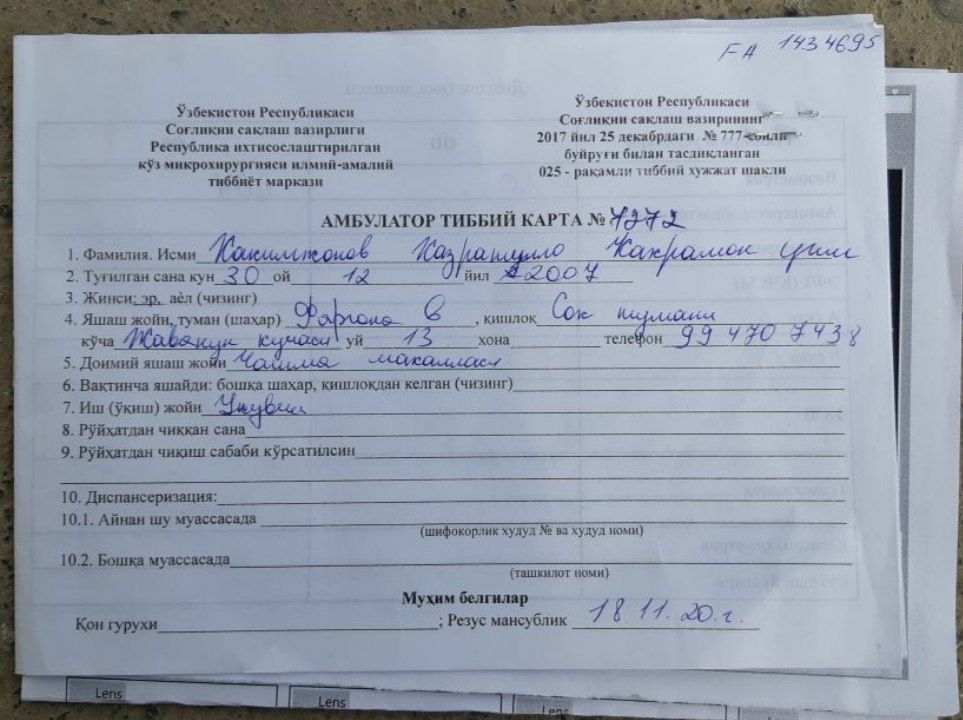 FA 1434695
Ўзбекистон Республикаси
Соғлиқни сақлаш вазирлиги
Республика ихтисослаштирилган
кўз микрохирургияси илмий-амалий
тиббиёт маркази
Ўзбекистон Республикаси
Соғлиқни сақлаш вазирининг
2017 йил 25 декабрдаги № 777-сонли
буйруғи билан тасдиқланган
025 - рақамли тиббий хужжат шакли
АМБУЛАТОР ТИББИЙ КАРТА № 7272
1. Фамилия. Исми Хакимжонов Хазратулло Кахрамон угли
2. Туғилган сана кун 30 ой 12 йил 2007
3. Жинси: эр, аёл (чизинг)
4. Яшаш жойи, туман (шаҳар) Фаргона в , қишлоқ Сох тумани
кўча кучаси уй 13 хона телефон 99 470 7438
5. Доимий яшаш жойи махалласи
6. Вақтинча яшайди: бошқа шаҳар, қишлоқдан келган (чизинг)
7. Иш (ўқиш) жойи Укувчи
8. Рўйҳатдан чиққан сана
9. Рўйҳатдан чиқиш сабаби кўрсатилсин
10. Диспансеризация:
10.1. Айнан шу муассасада
(шифокорлик худуд № ва худуд номи)
10.2. Бошқа муассасада
(ташкилот номи)
Муҳим белгилар
Қон гурухи ; Резус мансублик 18.11.20.г.
Lens
Lens
Lens